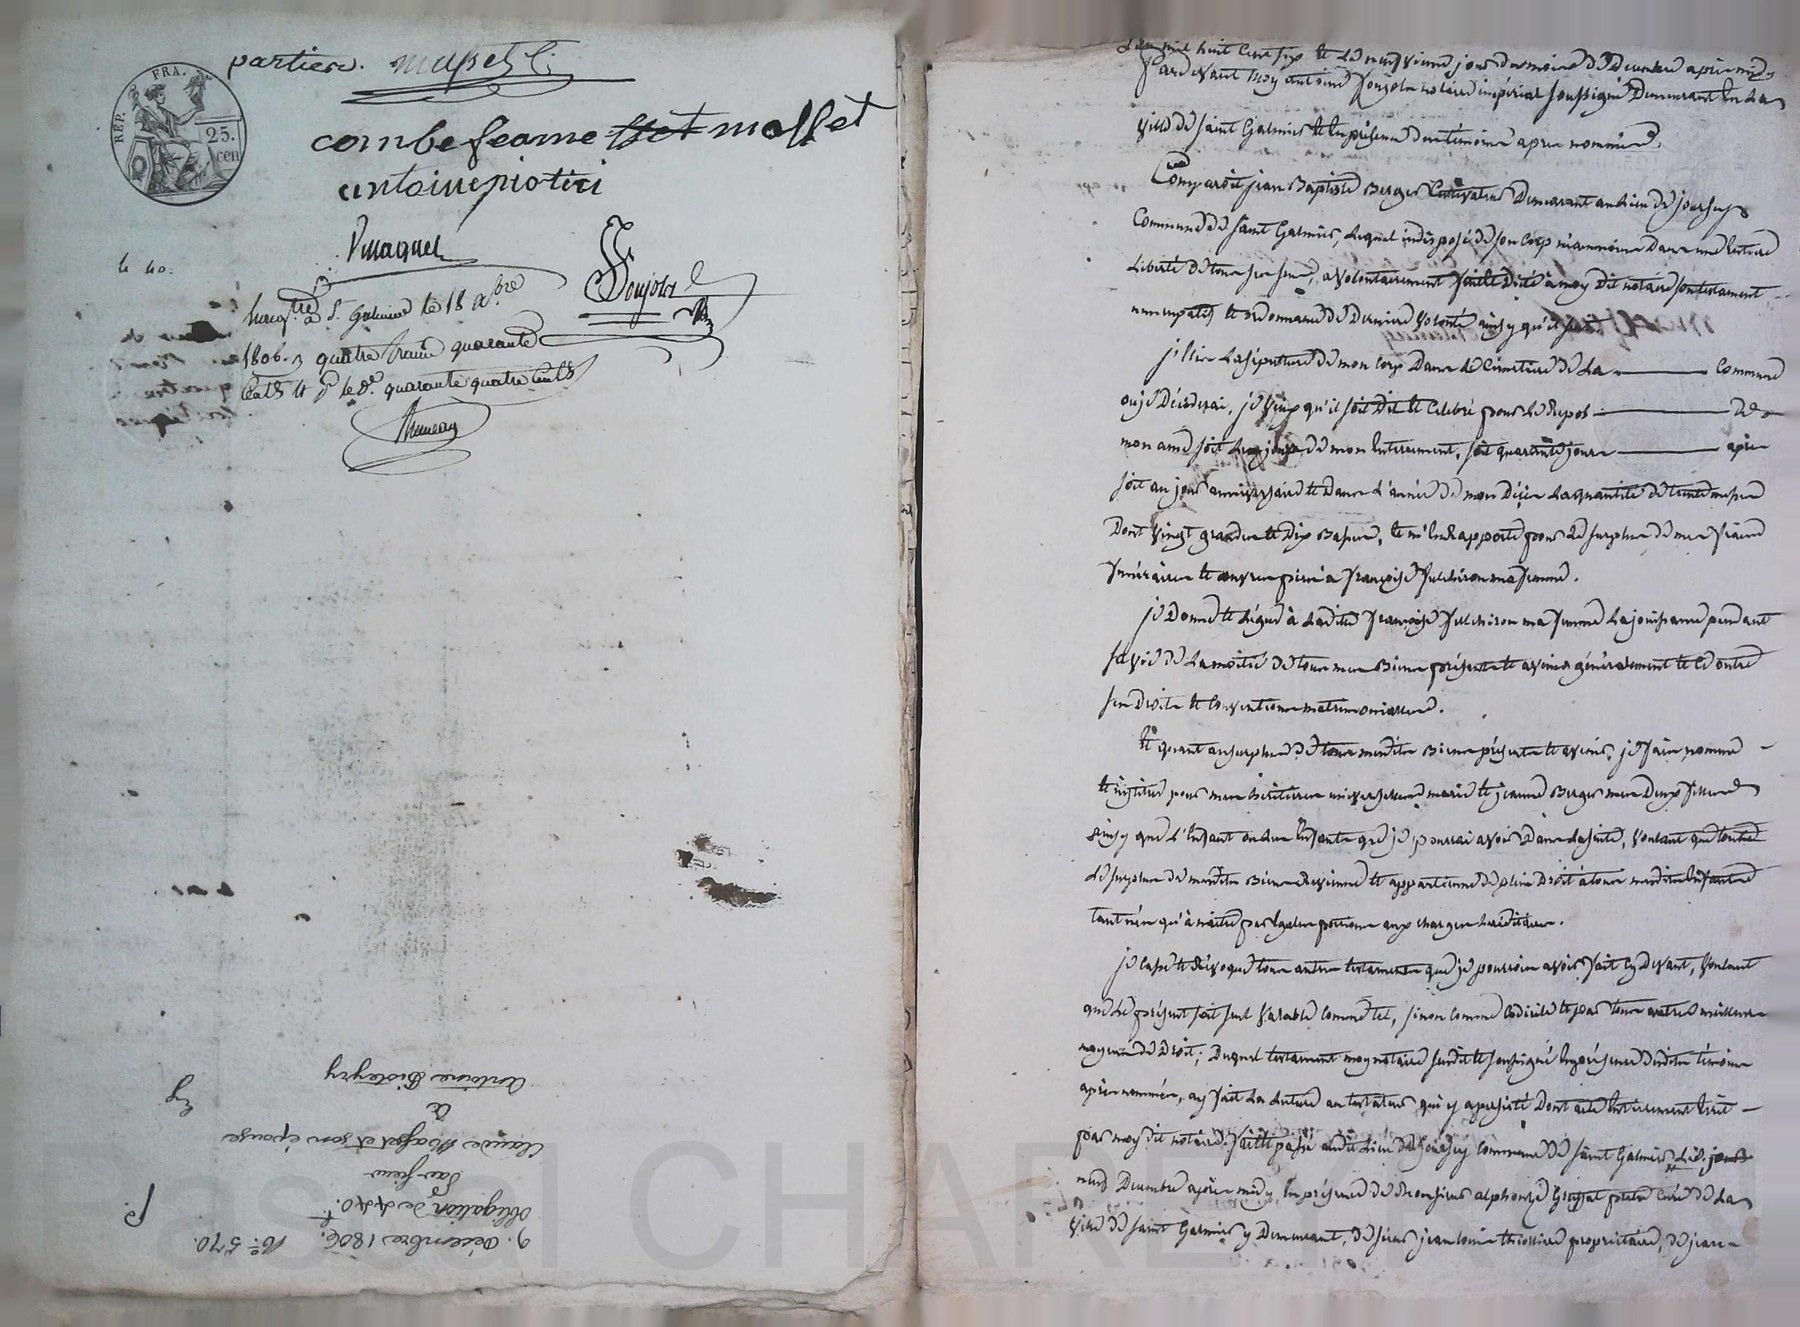 parties. masset C.
REP. FRA.
25. cen
combe feame masset
antoine
le 40.
S.t Galmier le 18 Xbre
1806. quatre francs quarante
quarante quatre
9. Décembre 1806. No. 570.
Obligation de 440 f.
Par sieur
Claude Masset et son épouse
à
Antoine
L'an mil huit cent six et le neuvieme jour du mois de Decembre apres midy
Pardevant moy antoine notaire impérial soussigné Demeurant en La
ville de saint Galmier et En présence des témoins apres nommés,
Comparoit jean Baptiste Berger Cultivateur Demeurant au Lieu de
Commune de saint Galmier, Lequel indisposé de son Corp néanmoins Dans une Entiere
Liberté de tous ses sens, a volontairement Dicté à moy dit notaire son testament
nuncupatif et ordonnance de Derniere volonté ainsy qu'il suit
j'Elis La sépulture de mon Corp Dans Le Cimetiere de La Commune
ou je Décéderai, je veux qu'il soit Dit et Celebré pour Le Repos De
mon ame soit Le jour de mon Enterrement, soit quarante jours après
soit au jour anniversaire et Dans L'année de mon Décès La quantité de trente messes
Dont vingt grandes et Dix Basses, et m'En Rapporte pour Le surplus de mes frais
funéraires et œuvres pies à françoise fulchiron ma femme.
je Donne et Légue à Ladite françoise fulchiron ma femme La jouissance pendant
sa vie de La moitié de tous mes Biens présents et avenir généralement et Ce outre
ses Droits et Conventions matrimoniales.
Et quant au surplus de tous mesdits Biens présents et avenir, je fais nomme
et institue pour mes héritieres universelles marie et jeanne Berger mes Deux filles
ainsy que L'Enfant ou Les Enfants que je pourrai avoir Dans La suite, voulant que
Le surplus de mesdits Biens Revienne et appartienne de plein Droit à tous mesdits Enfants
tant nés qu'à naitre par Egales portions aux charges héréditaires.
je Casse et Révoque tous autres testaments que je pourrois avoir fait Cy Devant, voulant
que Le présent soit seul valable comme tel, sinon comme Codicile et par tous autres meilleurs
moyens de Droit; Duquel testament moy notaire susdit et soussigné En présence desdits témoins
après nommés, ay fait La Lecture au testateur qui y a persisté Dont acte Entierement Ecrit
par moy dit notaire. fait et passé audit Lieu de Commune de saint Galmier Led. jour
neuf Decembre après midy, En présence de Monsieur alphonse prêtre curé de La
ville de saint Galmier y Demeurant, de sieur jean Louis propriétaire, de jean